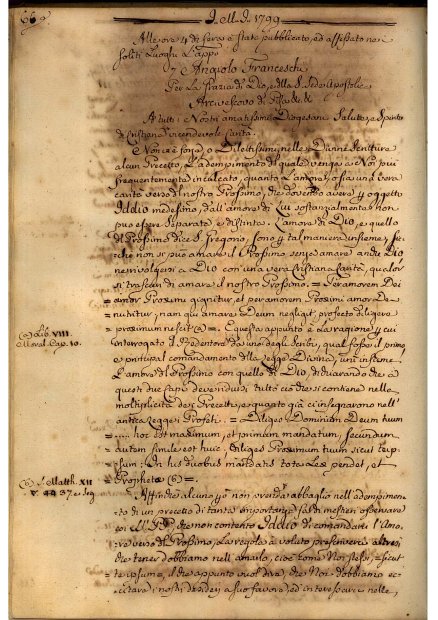 660
J. M. J. 1799
Alle ore 4 di sera è stato pubblicato, ed affissato nei
soliti Luoghi L'app.o
Angiolo Franceschi
Per La Grazia di Dio, e della S. Sede Apostolica
Arcivescovo di Pisa &c. &c.
A tutti i Nostri amatissimi Diogesani Salute, e Spirito
di Cristiana vicendevole Carità.
Non ci è forse, o Dilettissimi, nelle Divine Scritture
alcun Precetto, L'adempimento del quale venga a Noi più
frequentemente inculcato, quanto L'amore, o sia una vera
carità verso il nostro Prossimo, che dovendo avere p oggetto
Iddio medesimo, dall'amore di Lui sostanzialmente non
può essere separata, e distinta. L'amore di Dio, e quello
del Prossimo dice S. Gregorio, sono p tal maniera insieme,
che non si può amare il Prossimo senza amare anche Dio
ne rivolgersi a Dio con una vera Cristiana Carità, qualor
si trascuri di amare il nostro Prossimo. = Per amorem Dei
= amor Proximi gignitur, et per amorem Proximi amor Dei
= nutritur; nam qui amare Deum negligit, profecto diligere
= proximum nescit (a) = Questa appunto è La ragione p cui
(a) Lib. VIII.
Moral. Cap. 10.
interrogato il Redentore da uno degli Scribi, qual fosse il primo
e principal comandamento della Legge Divina, unì insieme
L'amore del Prossimo con quello di Dio, dichiarando che a
questi due Capi deve ridursi tutto ciò che si contiene nella
moltiplicità dei Precetti, e quanto già ci insegnarono nell'
antica Legge i Profeti. = Diliges Dominum Deum tuum
= .... hoc est maximum, et primum mandatum, secundum
= autem simile est huic, diliges Proximum tuum sicut te ip=
= sum: In his duobus mandatis tota Lex pendet, et
= Prophetæ (b) =.
(b) S. Matth. XII
v. 44 37 et seq.
Affinchè alcuno p non prenda abbaglio nell'adempimen=
to di un precetto di tanta importanza fa di mestieri osservare
che non contento Iddio di comandarci l'Amo=
re verso il Prossimo, La regola à voluto prescriverci altresì,
che tener dobbiamo nell'amarlo, cioè come Noi stessi, = sicut
= te ipsum, il che appunto vuol dire, che Noi dobbiamo ec=
citare i nostri desiderj a suo favore, ed interessarci nelle,